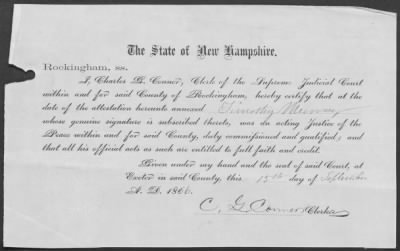 The State of New Hampshire.
Rockingham, ss.
I, Charles G. Conner, Clerk of the Supreme Judicial Court
within and for said County of Rockingham, hereby certify that at the
date of the attestation hereunto annexed Timothy
whose genuine signature is subscribed thereto, was an acting Justice of the
Peace within and for said County, duly commissioned and qualified; and
that all his official acts as such are entitled to full faith and credit.
Given under my hand and the seal of said Court, at
Exeter in said County, this 15th day of September
A. D. 1866.
C. G. Conner Clerk